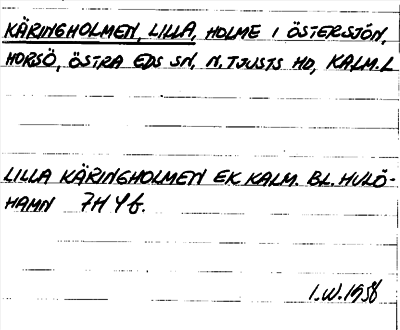 KÄRINGHOLMEN, LILLA, HOLME I ÖSTERSJÖN,
HORSÖ, ÖSTRA EDS SN, N. TJUSTS HD, KALM. L
LILLA KÄRINGHOLMEN EK KALM. BL. HULÖ-
HAMN 7H 4f.
I.W. 1958